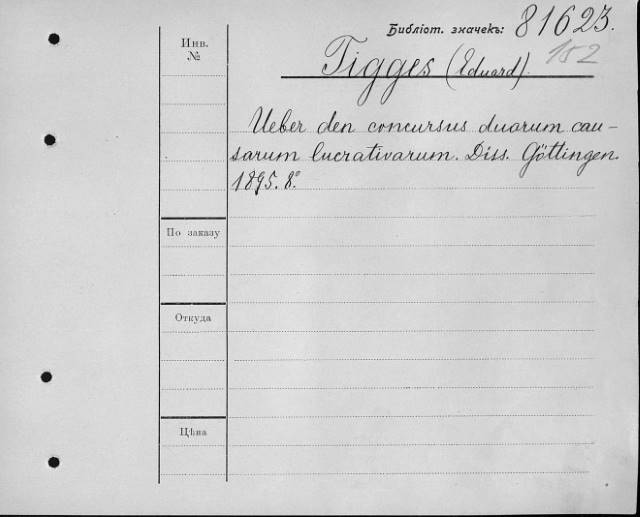 Библіот. значекъ: 81623.
152
Инв.
№
Tigges (Eduard).
Ueber den concursus duorum cau-
sarum lucrativarum. Diss. Göttingen.
1895. 8°.
По заказу
Откуда
Цѣна